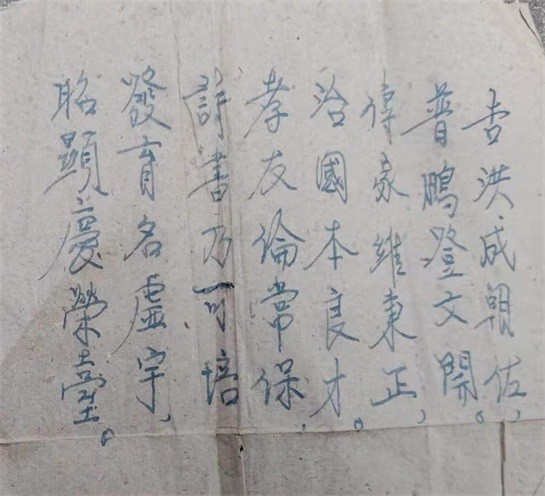 吉洪成朝佐，
普鵬登文開。
傳家維秉正，
治國本良才。
孝友倫常保，
詩書乃可培
發育名虛宇，
昭顯慶榮臺。